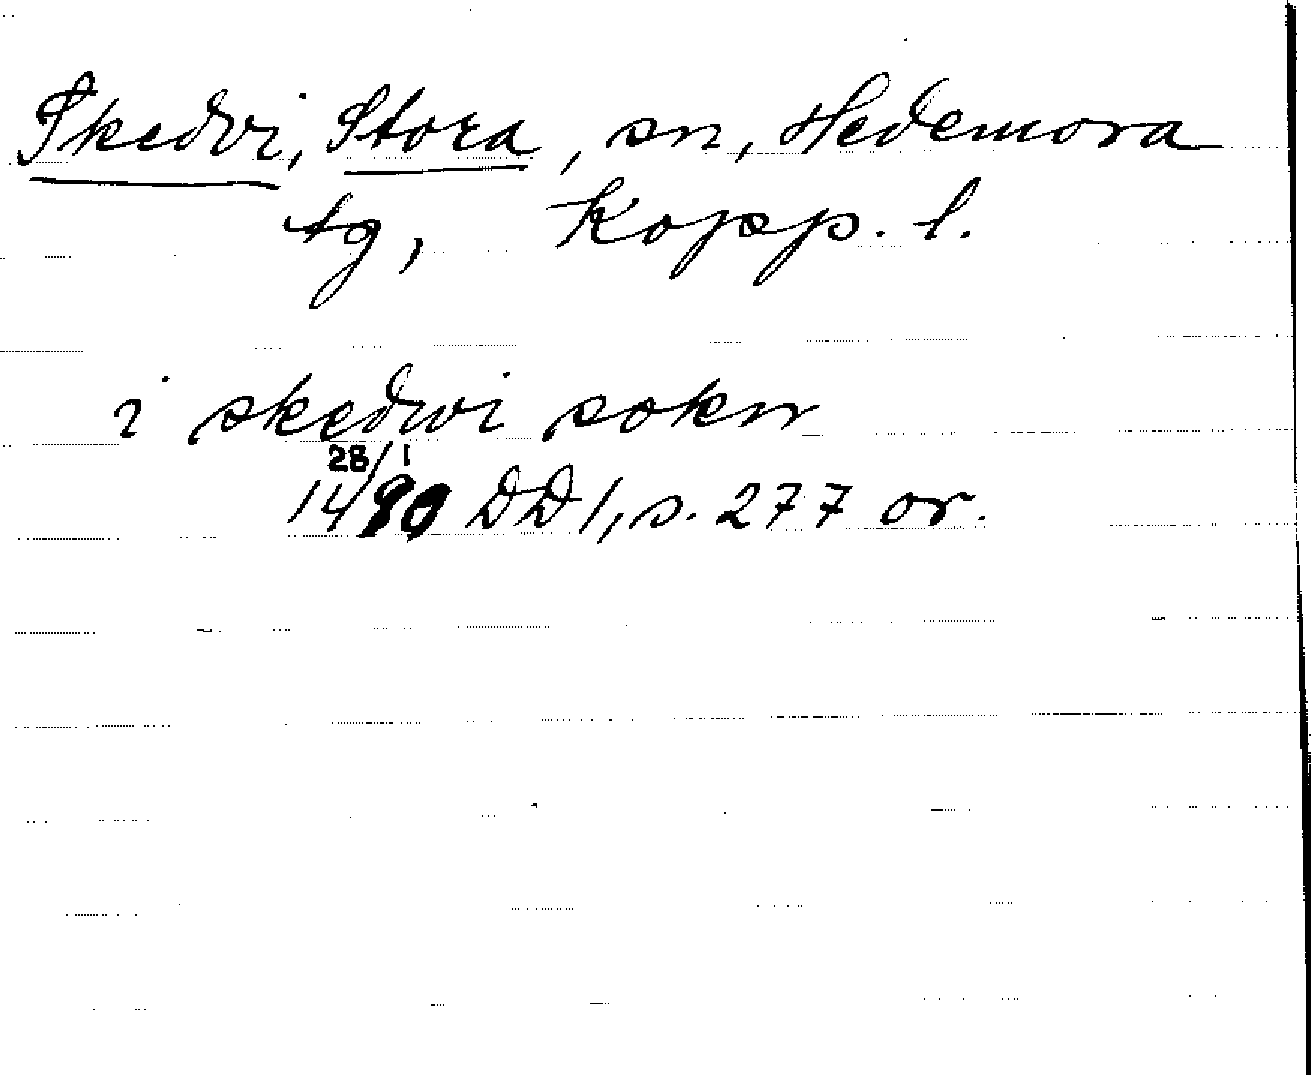 Skedvi, Stora, sn, Hedemora
tg, Kopp. l.
i skędwi sokn
28/1
1490 DD 1, s. 277 or.